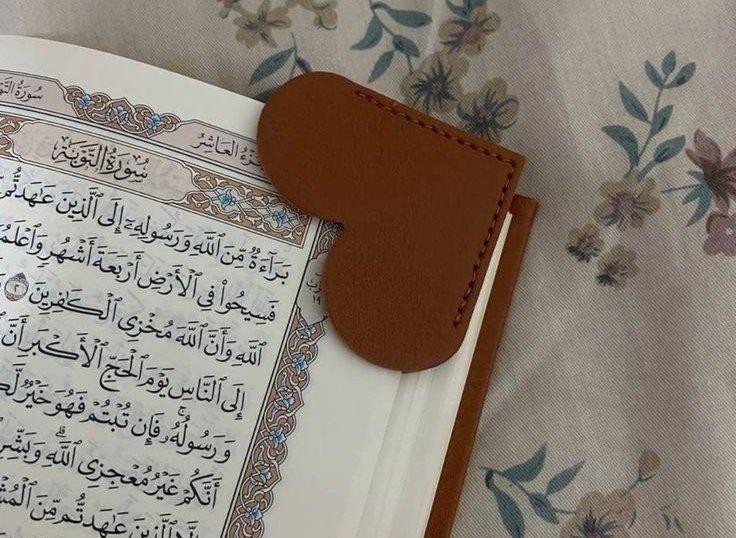 سُورَةُ التَّوْ
الْجُزْءُ الْعَاشِرُ
سُورَةُ التَّوْبَةِ
بَرَآءَةٌ مِّنَ ٱللَّهِ وَرَسُولِهِۦٓ إِلَى ٱلَّذِينَ عَٰهَدتُّم
فَسِيحُوا۟ فِى ٱلْأَرْضِ أَرْبَعَةَ أَشْهُرٍ وَٱعْلَمُ
ٱللَّهِ وَأَنَّ ٱللَّهَ مُخْزِى ٱلْكَٰفِرِينَ ٢
إِلَى ٱلنَّاسِ يَوْمَ ٱلْحَجِّ ٱلْأَكْبَرِ أَنَّ
وَرَسُولُهُۥ فَإِن تُبْتُمْ فَهُوَ خَيْرٌ لَّكُ
أَنَّكُمْ غَيْرُ مُعْجِزِى ٱللَّهِ وَبَشِّرِ
إِلَّا ٱلَّذِينَ عَٰهَدتُّم مِّنَ ٱلْمُشْ